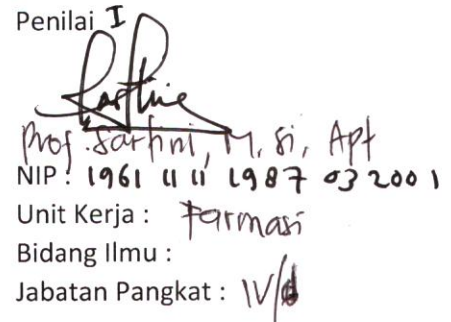 Penilai I
Prof. Sartini, M. Si, Apt
NIP : 1961 11 11 1987 03 2001
Unit Kerja : Farmasi
Bidang Ilmu :
Jabatan Pangkat : IV/d